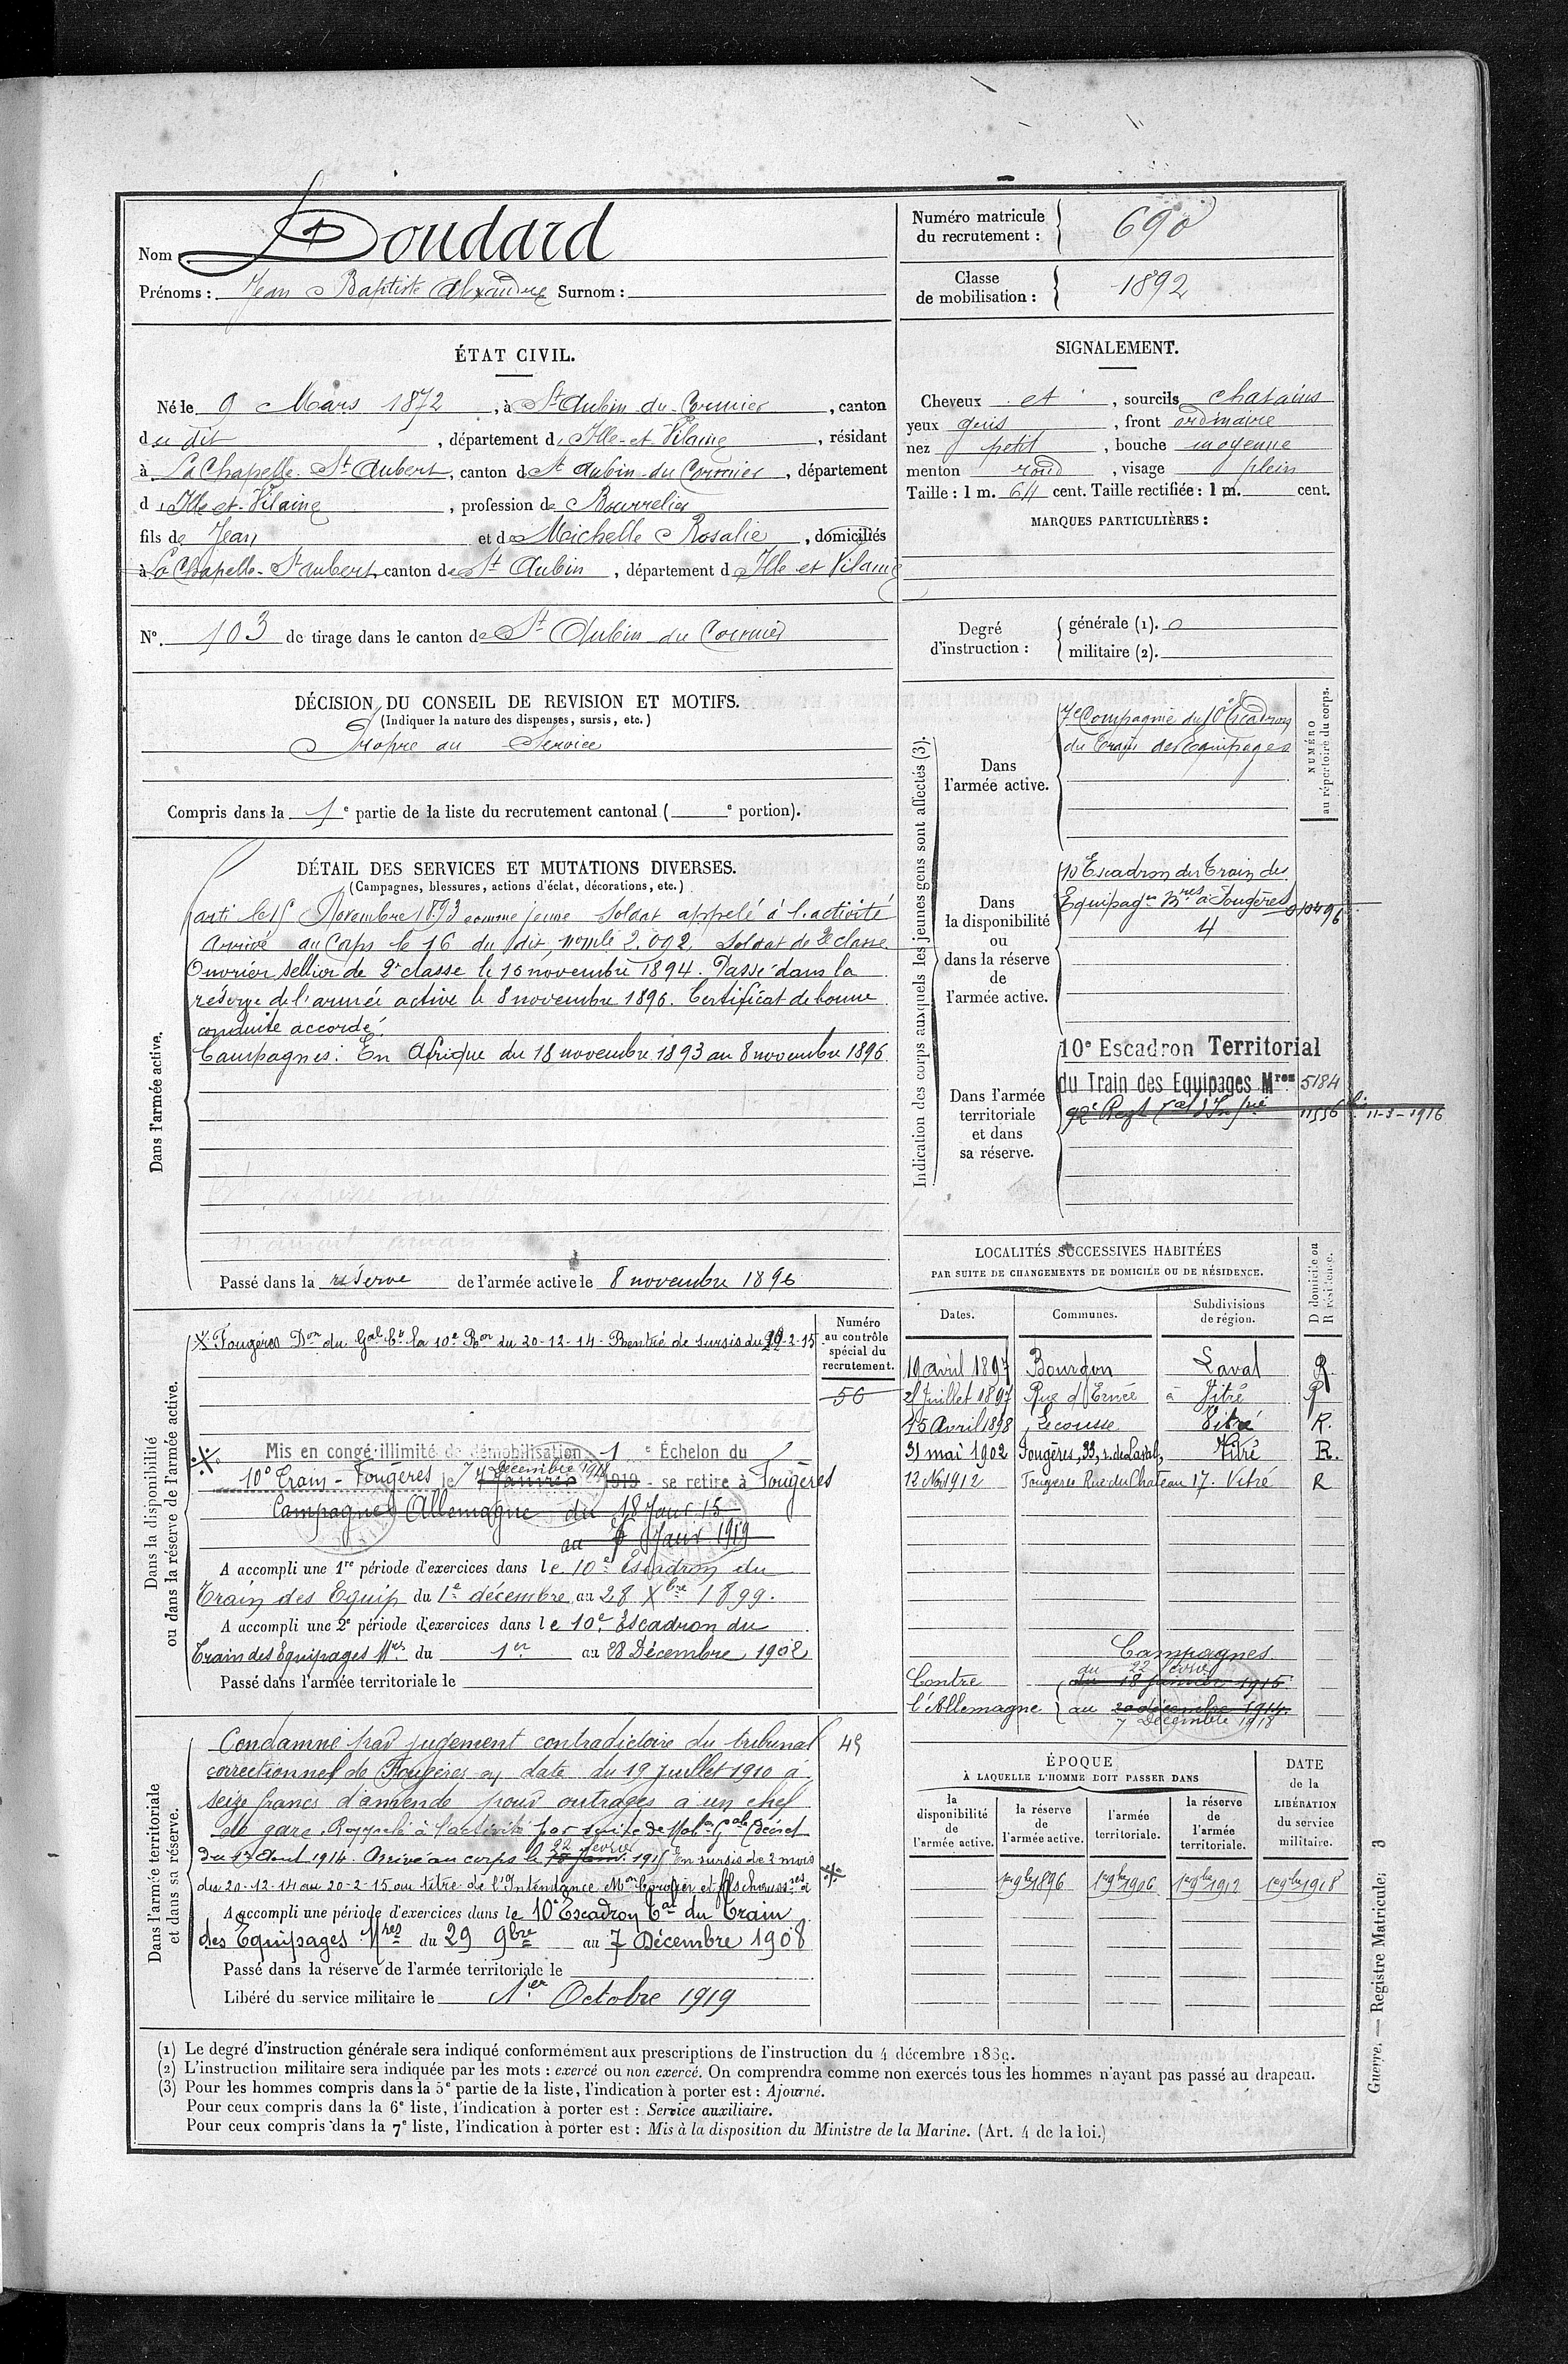 Nom Doudard
Prénoms : Jean Baptiste Alexandre Surnom :
Numéro matricule du recrutement : 690
Classe de mobilisation : 1892
ÉTAT CIVIL.
Né le 9 Mars 1872, à St Aubin-du-Cormier, canton
du dit, département d'Ille-et-Vilaine, résidant
à La Chapelle-St Aubert, canton de St Aubin-du-Cormier, département
d'Ille-et-Vilaine, profession de Bourrelier
fils de Jean et de Michelle Rosalie, domiciliés
à La Chapelle-St Aubert, canton de St Aubin, département d'Ille et Vilaine
No. 103 de tirage dans le canton de St Aubin du Cormier
SIGNALEMENT.
Cheveux et, sourcils chatains
yeux gris, front ordinaire
nez petit, bouche moyenne
menton rond, visage plein
Taille : 1 m. 64 cent. Taille rectifiée : 1 m. cent.
MARQUES PARTICULIÈRES :
Degré d'instruction : générale (1). 0
militaire (2).
DÉCISION DU CONSEIL DE REVISION ET MOTIFS.
(Indiquer la nature des dispenses, sursis, etc.)
Propre au Service
Compris dans la 1e partie de la liste du recrutement cantonal (e portion).
DÉTAIL DES SERVICES ET MUTATIONS DIVERSES.
(Campagnes, blessures, actions d'éclat, décorations, etc.)
Dans l'armée active.
Parti le 15 Novembre 1893 comme jeune Soldat appelé à l'activité
Arrivé au Corps le 16 du dit, nomle 2.092. Soldat de 2e classe
Ouvrier Sellier de 2e classe le 10 novembre 1894. Passé dans la
réserve de l'armée active le 8 novembre 1896. Certificat de bonne
conduite accordé.
Campagnes : En Afrique du 18 novembre 1893 au 8 novembre 1896
Passé dans la réserve de l'armée active le 8 novembre 1896
Indication des corps auxquels les jeunes gens sont affectés (3).
NUMÉRO au répertoire du corps.
Dans l'armée active.
7e Compagnie du 10e Escadron
du Train des Equipages
Dans la disponibilité ou dans la réserve de l'armée active.
10 Escadron du Train des
Equipages Mres à Fougères
4
Dans l'armée territoriale et dans sa réserve.
10e Escadron Territorial
du Train des Equipages Mres 5184
11556 bis 11-3-1916
Dans la disponibilité ou dans la réserve de l'armée active.
Numéro au contrôle spécial du recrutement.
50
Fougères Don du Gal Ct la 10e Ron du 20-12-14 - Rentré de sursis du 20-2-15
Mis en congé illimité de démobilisation 1e Échelon du
10e Train - Fougères le 7 Décembre 1918 1919 - se retire à Fougères
Campagne Allemagne du 18 Janr 15
au Janr 1919
A accompli une 1re période d'exercices dans le 10e Escadron du
Train des Equip du 1er décembre au 28 Xbre 1899.
A accompli une 2e période d'exercices dans le 10e Escadron du
Train des Equipages Mres du 1er au 28 Décembre 1902
Passé dans l'armée territoriale le
LOCALITÉS SUCCESSIVES HABITÉES
PAR SUITE DE CHANGEMENTS DE DOMICILE OU DE RÉSIDENCE.
Dates. Communes. Subdivisions de région. D domicile ou R résidence.
19 avril 1897 Bourdon Laval R
21 Juillet 1897 Rue d'Ernée à Vitré R
15 Avril 1898 Lecousse Vitré R.
31 mai 1902 Fougères, 33, r. de Laval, Vitré R.
12 1912 Fougères Rue du Chateau 17. Vitré R
Campagnes
Contre l'Allemagne du 22 févrie
du 18 janvier 1915
au 20 décembre 1914
7 Décembre 1918
Dans l'armée territoriale et dans sa réserve.
Condamné par jugement contradictoire du tribunal 49
correctionnel de Fougères en date du 19 juillet 1910 à
seize francs d'amende pour outrages à un chef
de gare. Rappelé à l'activité par suite de Mobon Gale (Décret
du 1er Aout 1914. Arrivé au corps le 22 févrie 1915 En sursis de 2 mois
du 20-12-14 au 20-2-15 au titre de l'Intendance
A accompli une période d'exercices dans le 10e Escadron Tal du Train
des Équipages Mres du 29 9bre au 7 Décembre 1908
Passé dans la réserve de l'armée territoriale le
Libéré du service militaire le 1er Octobre 1919
ÉPOQUE
À LAQUELLE L'HOMME DOIT PASSER DANS
la disponibilité de l'armée active. la réserve de l'armée active. l'armée territoriale. la réserve de l'armée territoriale. DATE de la LIBÉRATION du service militaire.
1er 9bre 1896 1er 9bre 1906 1er 9bre 1912 1er 9bre 1918
(1) Le degré d'instruction générale sera indiqué conformément aux prescriptions de l'instruction du 4 décembre 1889.
(2) L'instruction militaire sera indiquée par les mots : exercé ou non exercé. On comprendra comme non exercés tous les hommes n'ayant pas passé au drapeau.
(3) Pour les hommes compris dans la 5e partie de la liste, l'indication à porter est : Ajourné.
Pour ceux compris dans la 6e liste, l'indication à porter est : Service auxiliaire.
Pour ceux compris dans la 7e liste, l'indication à porter est : Mis à la disposition du Ministre de la Marine. (Art. 4 de la loi.)
Guerre. — Registre Matricule: 3